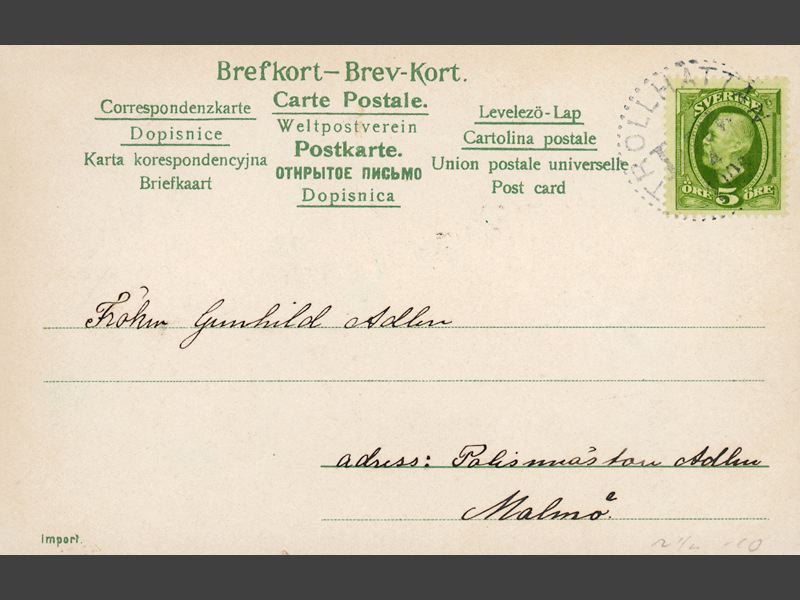 Brefkort—Brev-Kort.
Correspondenzkarte
Dopisnice
Karta korespondencyjna
Briefkaart
Carte Postale.
Weltpostverein
Postkarte.
ОТКРЫТОЕ ПИСЬМО
Dopisnica
Levelezö-Lap
Cartolina postale
Union postale universelle
Post card
TROLLHÄTTAN
SVERIGE
ÖRE 5 ÖRE
Fröken Gunhild Adlen
adress: Polismästare Adlen
Malmö
Import.